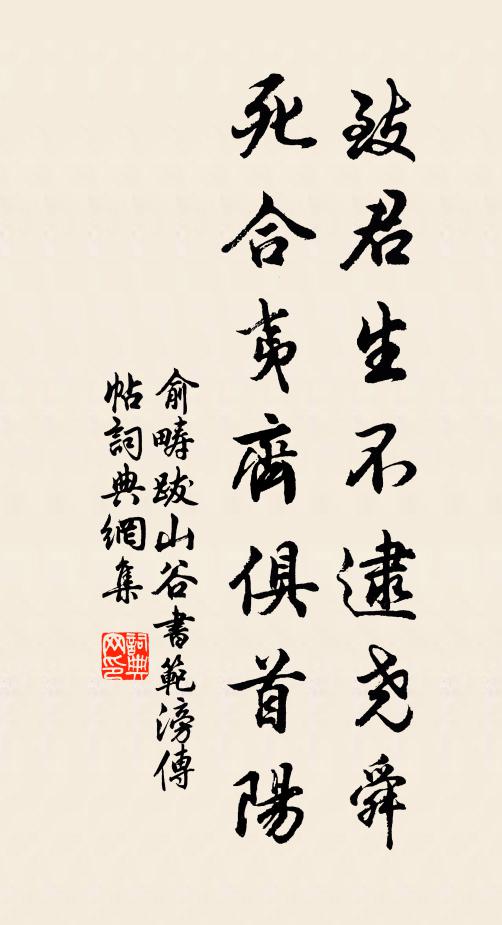 致君生不逮尧舜
死合夷齊俱首陽
俞疇跋山谷書範滂傳
帖詞典網集
詞典网印